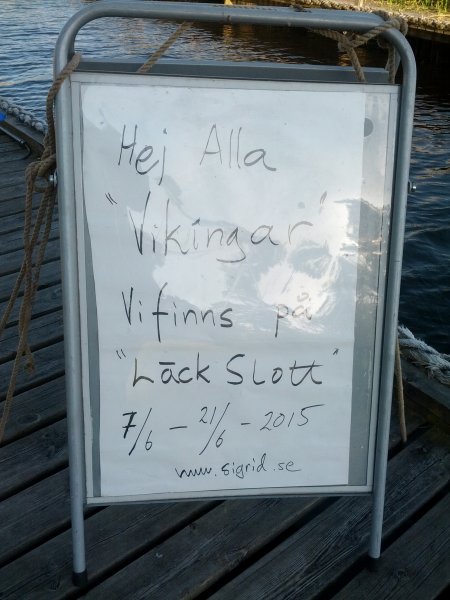 Hej Alla
"Vikingar"
Vi finns på
"Läck Slott"
7/6 - 21/6 - 2015
www.sigrid.se